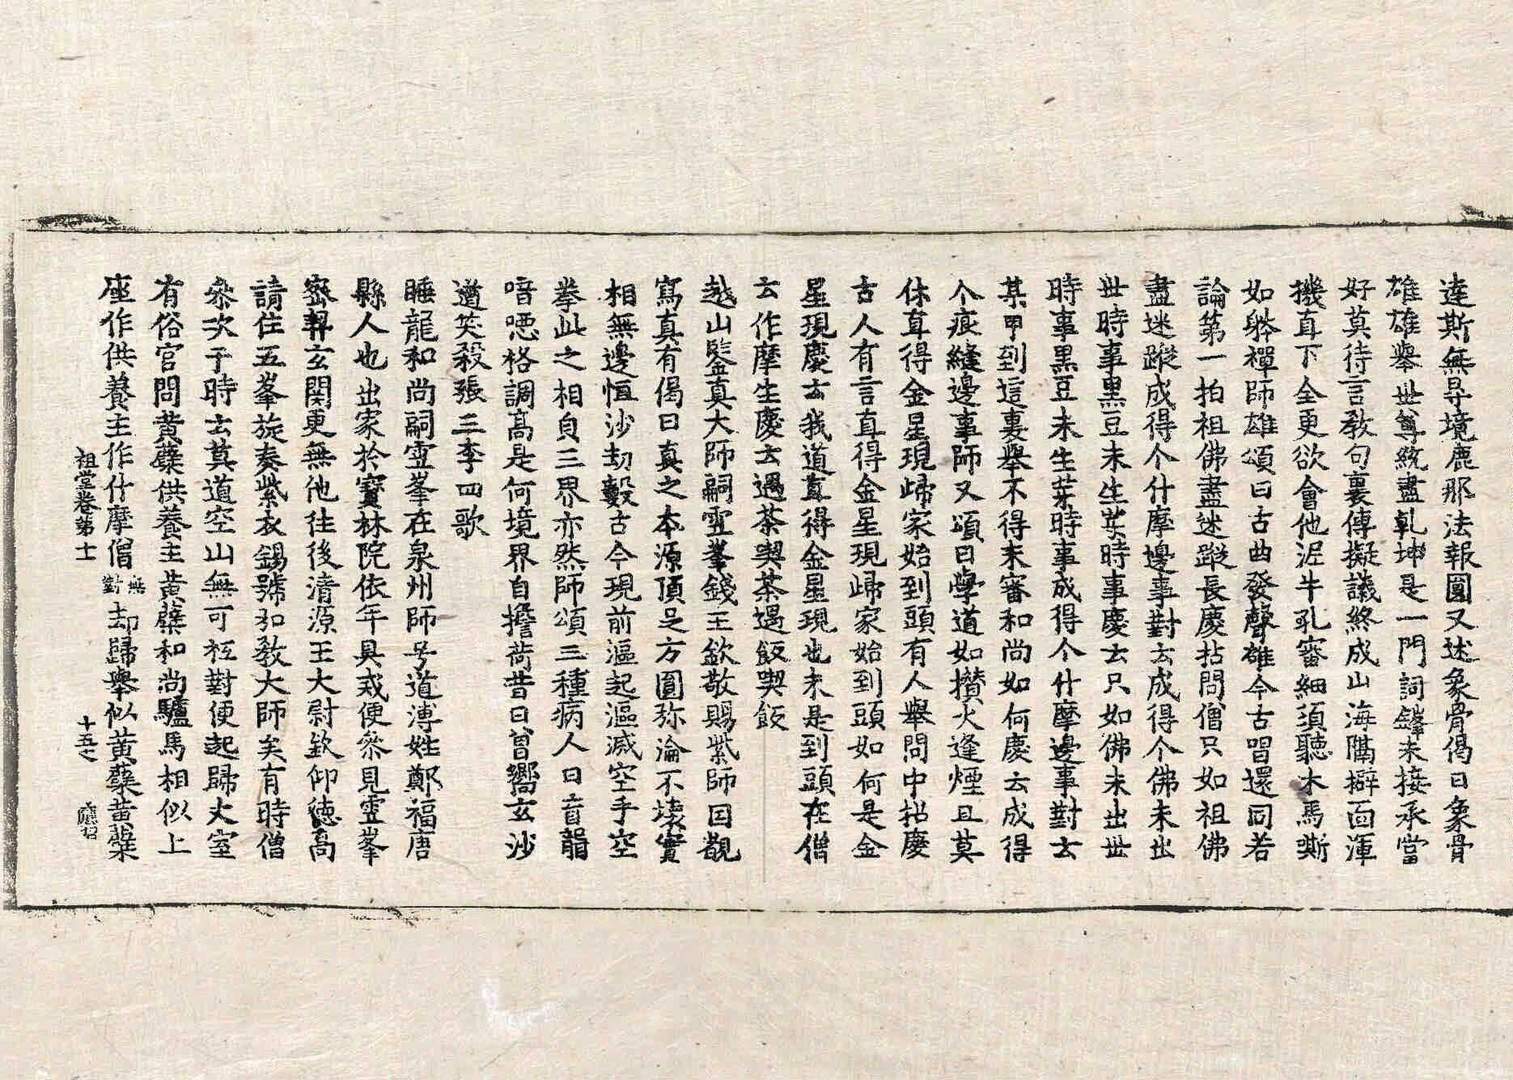 達斯無导境鹿那法報圓又述象骨偈曰象骨
雄雄舉世尊統盡乹坤是一門詞鋒未接承當
好莫待言教句裏傳擬議終成山海隔擗面渾
機直下全更欲會他泥牛孔審細須聽木馬嘶
如躰禪師雄頌曰古曲發聲雄今古唱還同若
論第一拍祖佛盡迷蹤長慶拈問僧只如祖佛
盡迷蹤成得个什摩邊事對云成得个佛未出
世時事黑豆未生芽時事慶云只如佛未出世
時事黑豆未生芽時事成得个什摩邊事對云
某甲到這裏舉不得未審和尚如何慶云成得
个痕縫邊事師又頌曰學道如攢火逢煙且莫
休直得金星現歸家始到頭有人舉問中招慶
古人有言直得金星現歸家始到頭如何是金
星現慶云我道直得金星現也未是到頭在僧
云作摩生慶云遇茶喫茶遇飯喫飯
越山鑒真大師嗣雪峯錢王欽敬賜紫師因覩
寫真有偈曰真之本源頂足方圓弥淪不壞實
相無邊恒沙劫數古今現前漚起漚滅空手空
拳此之相貟三界亦然師頌三種病人曰盲聾
喑啞格調高是何境界自擔荷昔日曾嚮玄沙
道笑殺張三李四歌
睡龍和尚嗣雪峯在泉州師号道溥姓鄭福唐
縣人也出家於寶林院依年具戒便叅見雪峯
密契玄関更無他往後清源王大尉欽仰德高
請住五峯旋奏紫衣錫號弘教大師矣有時僧
叅次于時云莫道空山無可祗對便起歸大室
有俗官問黃蘗供養主黃蘗和尚驢馬相似上
座作供養主作什摩僧無對却歸舉似黃蘗黃蘗
祖堂卷第十一 十五之